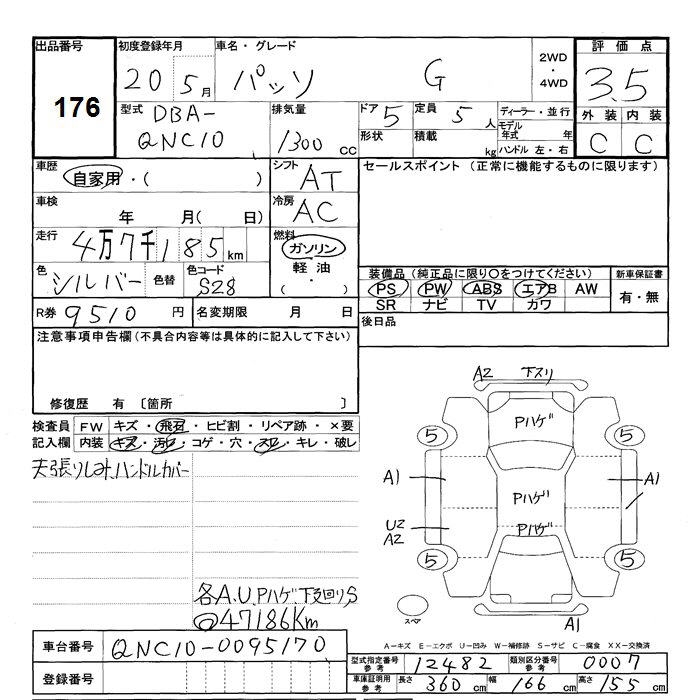 出品番号 初度登録年月 車名・グレード 2WD・4WD 評価点
176 20 5月 パッソ G 3.5
型式 DBA-QNC10 排気量 1300cc ドア 5 定員 5人 ディーラー・並行 外装 内装
形状 積載 kg モデル年式 年 ハンドル 左・右 C C
車歴 自家用・( ) シフト AT セールスポイント (正常に機能するものに限ります)
車検 年 月( 日) 冷房 AC
走行 4万7千185km 燃料 ガソリン
軽油
( ・ )
色 シルバー 色替 色コード S28 装備品(純正品に限り○をつけてください) 新車保証書
PS PW ABS エアB AW 有・無
SR ナビ TV カワ
R券 9510円 名変期限 月 日 後日品
注意事項申告欄(不具合内容等は具体的に記入して下さい)
修復歴 有 〔箇所 〕
A2 下スリ
Pハゲ
検査員 FW キズ・飛石・ヒビ割・リペア跡・×要
記入欄 内装 キズ・汚れ・コゲ・穴・スレ・キレ・破レ
5 5
天張りしみ、ハンドルカバー
A1 A1
Pハゲ
U2 Pハゲ
A2
5 5
各A.U.Pハゲ下廻りS
47186Km
スペア
A1
A-キズ E-エクボ U-凹み W-補修跡 S-サビ C-腐食 XX-交換済
車台番号 QNC10-0095170
型式指定番号 参考 12482 類別区分番号 参考 0007
登録番号
車庫証明用 参考 長さ 360cm 幅 166cm 高さ 155cm